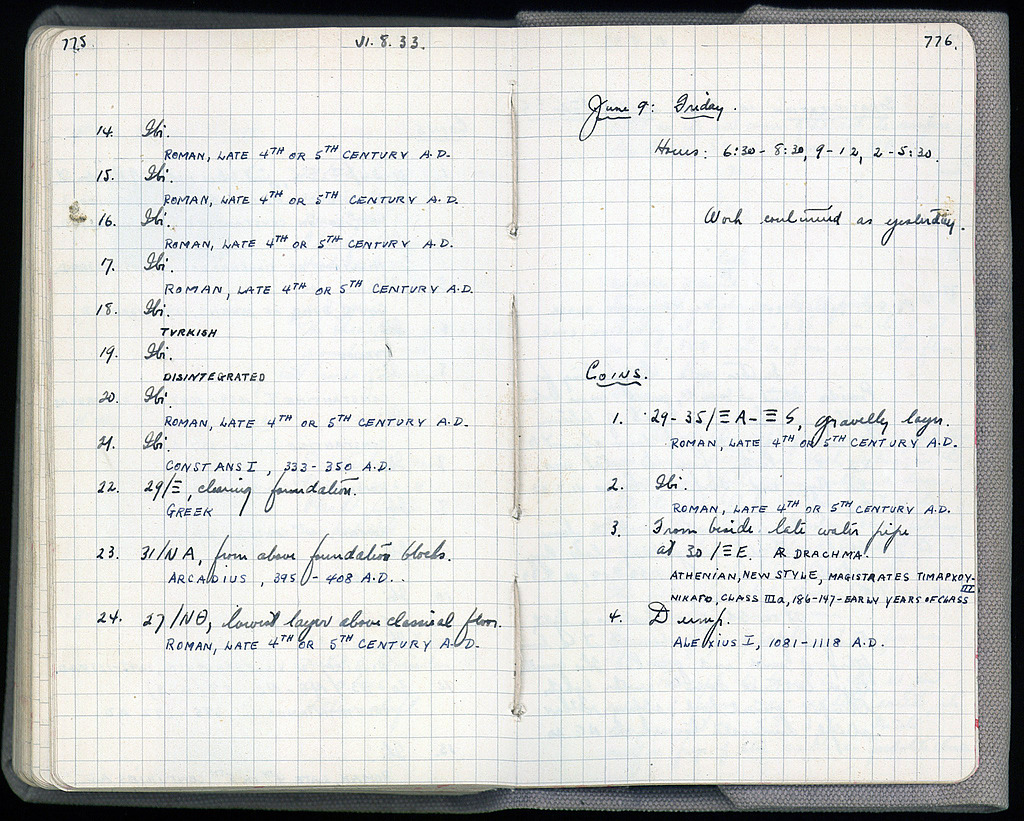 775
VI. 8. 33.
14. Ibi.
ROMAN, LATE 4TH OR 5TH CENTURY A.D.
15. Ibi.
ROMAN, LATE 4TH OR 5TH CENTURY A.D.
16. Ibi.
ROMAN, LATE 4TH OR 5TH CENTURY A.D.
17. Ibi.
ROMAN, LATE 4TH OR 5TH CENTURY A.D.
18. Ibi.
TVRKISH
19. Ibi.
DISINTEGRATED
20. Ibi.
ROMAN, LATE 4TH OR 5TH CENTURY A.D.
21. Ibi.
CONSTANS I, 333-350 A.D.
22. 29/Ξ, clearing foundation.
GREEK
23. 31/ΝΑ, from above foundation blocks.
ARCADIUS, 395-408 A.D..
24. 27/ΝΘ, lowest layer above classical floor.
ROMAN, LATE 4TH OR 5TH CENTURY A.D.
776.
June 9: Friday.
Hours: 6:30-8:30, 9-12, 2-5:30.
Work continued as yesterday.
COINS.
1. 29-35/ΞΑ-ΞS, gravelly layer.
ROMAN, LATE 4TH OR 5TH CENTURY A.D.
2. Ibi.
ROMAN, LATE 4TH OR 5TH CENTURY A.D.
3. From beside late water pipe
at 30/ΞE. AR DRACHMA.
ATHENIAN, NEW STYLE, MAGISTRATES TIMAPXOY-
NIKAΓO, CLASS IIIa, 186-147-EARLY YEARS OF CLASS III
4. Dump.
ALEXIUS I, 1081-1118 A.D.